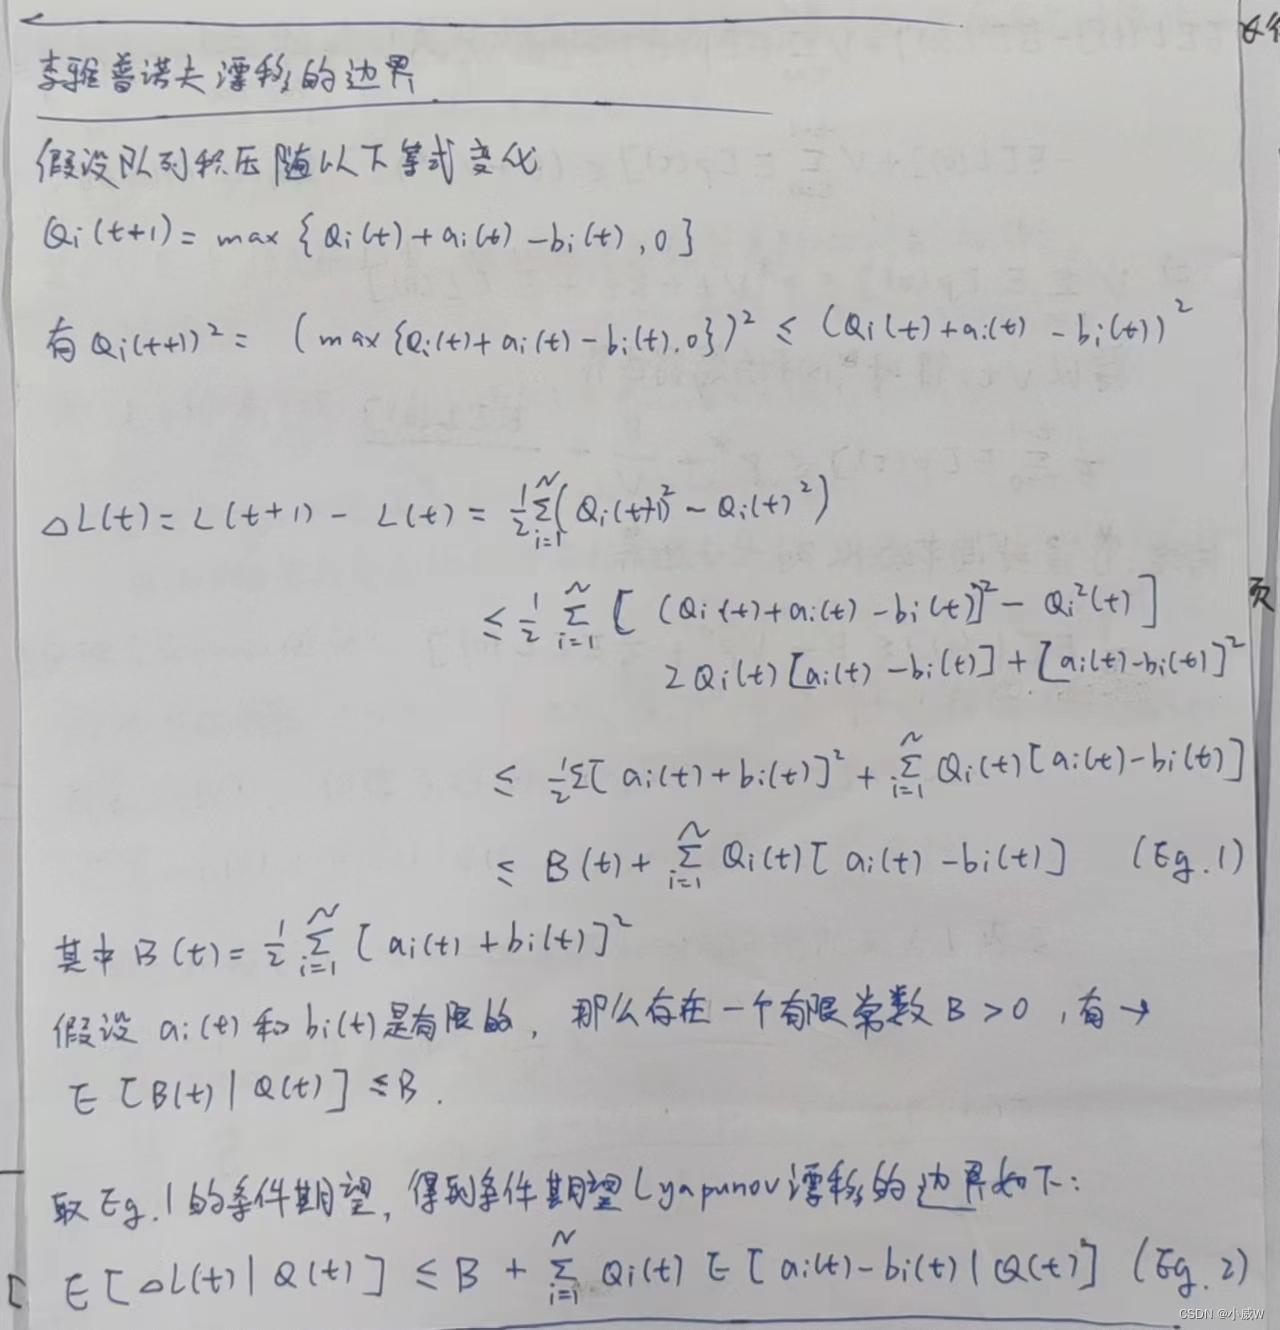 李雅普诺夫漂移的边界
假设队列积压随以下等式变化
Qi(t+1) = max {Qi(t) + ai(t) - bi(t), 0}
有 Qi(t+1)² = (max {Qi(t) + ai(t) - bi(t), 0})² ≤ (Qi(t) + ai(t) - bi(t))²
△L(t) = L(t+1) - L(t) = 1/2 Σ_{i=1}^{N} (Qi(t+1)² - Qi(t)²)
≤ 1/2 Σ_{i=1}^{N} [(Qi(t) + ai(t) - bi(t)]² - Qi²(t)]
2Qi(t)[ai(t) - bi(t)] + [ai(t) - bi(t)]²
≤ 1/2 Σ[ai(t) + bi(t)]² + Σ_{i=1}^{N} Qi(t)[ai(t) - bi(t)]
≤ B(t) + Σ_{i=1}^{N} Qi(t)[ai(t) - bi(t)] (Eg.1)
其中 B(t) = 1/2 Σ_{i=1}^{N} [ai(t) + bi(t)]²
假设 ai(t) 和 bi(t) 是有限的, 那么存在一个有限常数 B > 0, 有 →
E[B(t) | Q(t)] ≤ B.
取 Eg.1 的条件期望, 得到条件期望 Lyapunov 漂移的边界如下:
E[△L(t) | Q(t)] ≤ B + Σ_{i=1}^{N} Qi(t) E[ai(t) - bi(t) | Q(t)] (Eg.2)
页
CSDN @小威W